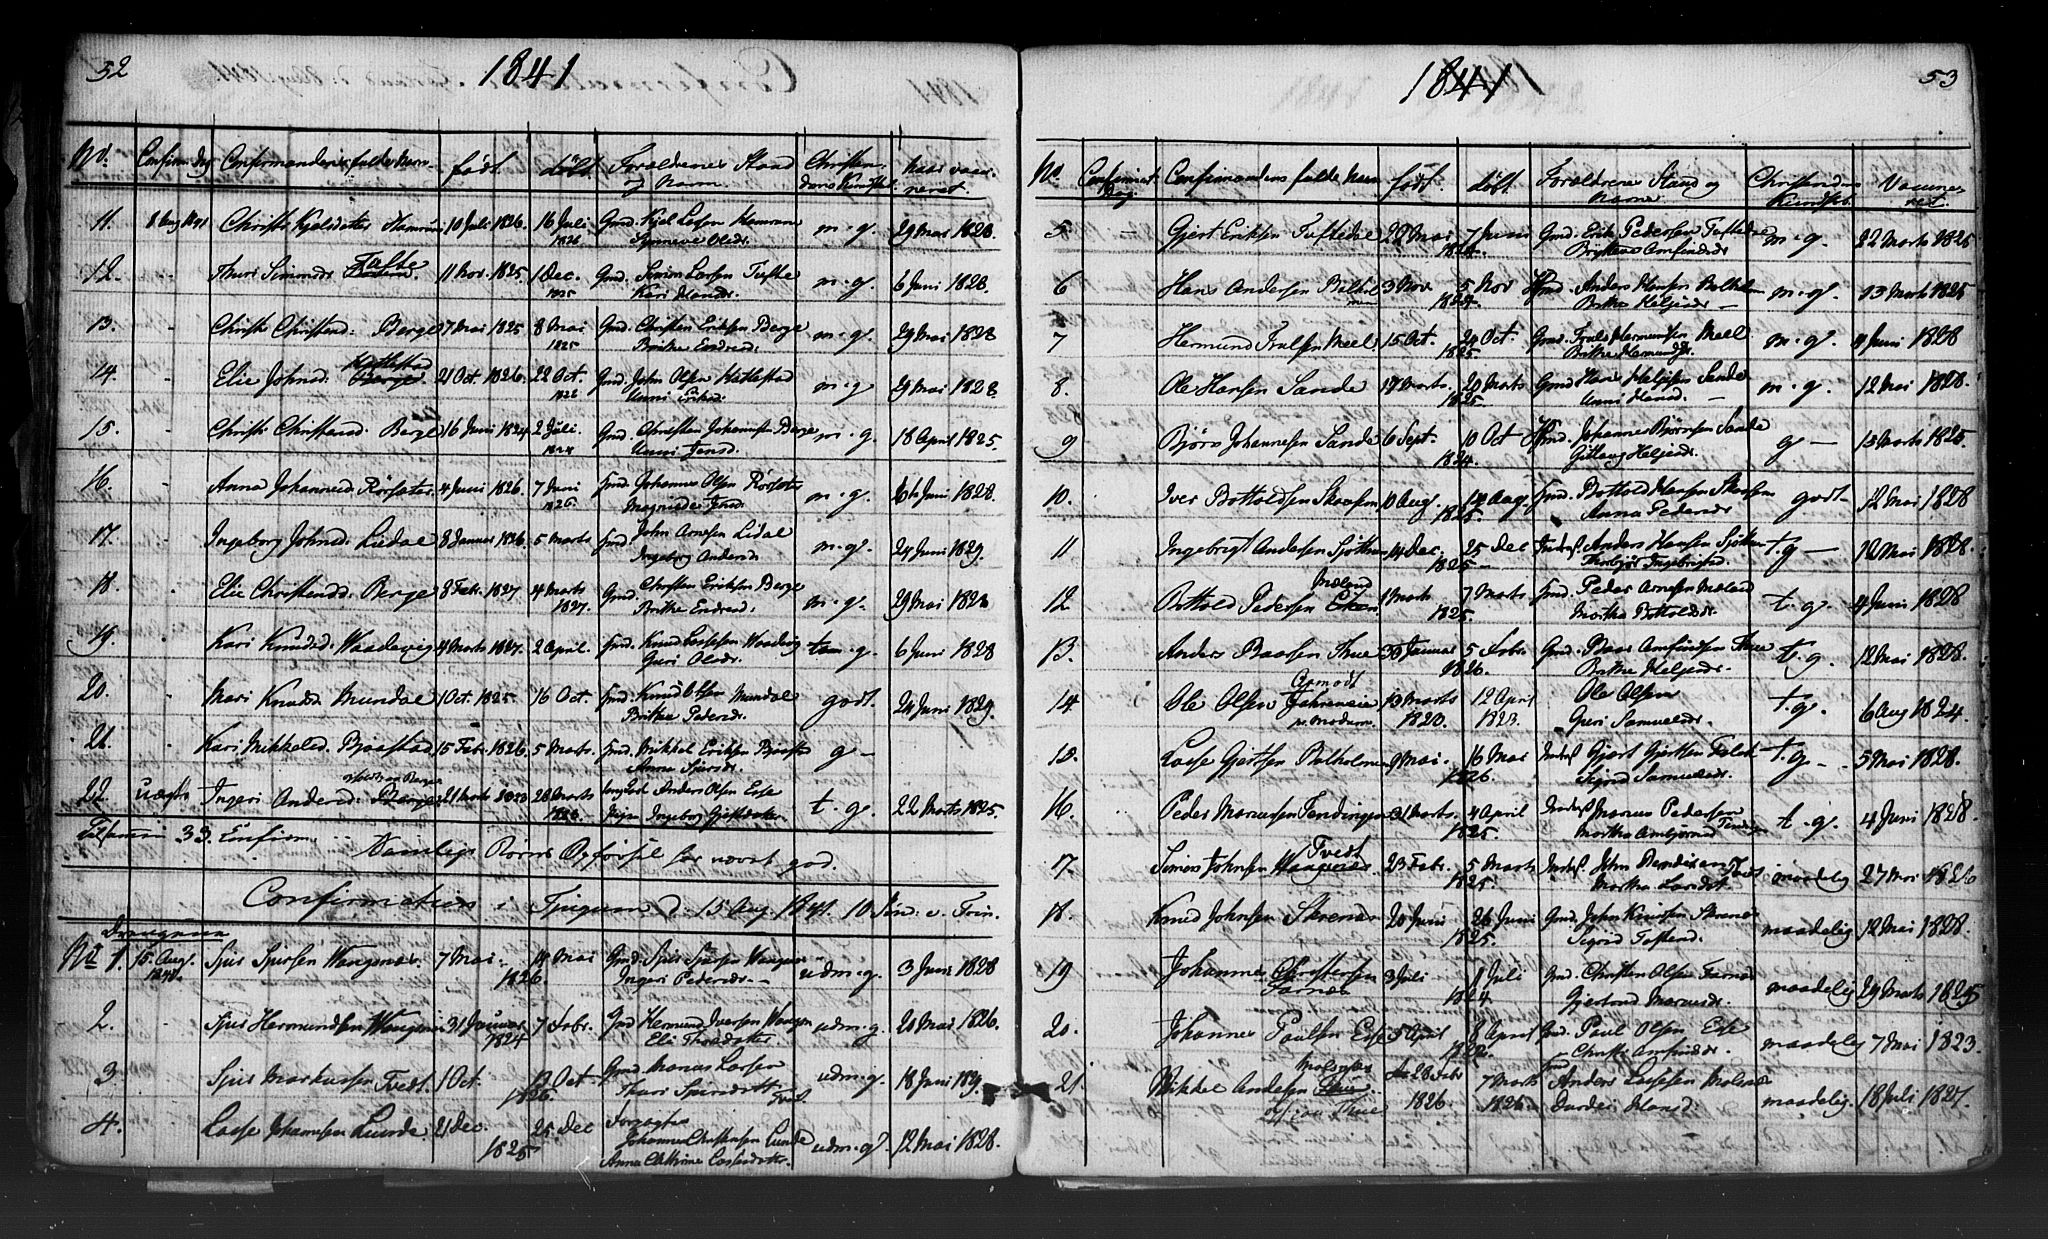 52
1841
No. Confirm. Dag Confirmandernes fulde Navn født døbt Forældrenes Stand og Navn Christendoms Kundskab naar vaccineret
11. 8 Aug 1841 Christi Kjelsdatter Hamrum 10 Juli 1826. 16 Juli 1826 Gmd. Kjel Larsen Hamrum Synneve Olsdr. m.g. 29 Mai 1828
12. " Thuri Simonsdr. Tufte 11 Nov. 1825. 1 Dec. 1825 Gmd. Simon Larsen Tufte Kari Hansdr. m.g. 6 Juni 1828.
13. " Christi Christensd. Berge 7 Mai 1825 8 Mai 1825 Gmd. Christen Eriksen Berge Brithe Endresd. m.g. 29 Mai 1828
14. " Elie Johnsd. Hatlestad Berge 21 Oct. 1826. 22 Oct. 1826 Gmd. John Olsen Hatlestad Unni Eriksd. m.g. 29 Mai 1828.
15. " Christi Christensd. Berge 16 Juni 1824 2 Juli 1824 Gmd. Christen Johannesen Berge Unni Jensd. m.g. 18 April 1825.
16. " Anna Johannesd. Rørsæter 4 Juni 1826. 7 Juni 1826. Gmd. Johannes Olsen Rørsæter Magnilde Jensd. m.g. 6 Juni 1828.
17. " Ingeborg Johnsd. Lidal 8 Januar 1826. 5 Marts Gmd. John Arnesen Lidal Ingeborg Andersd. m.g. 24 Juni 1829.
18. " Elie Christensd. Berge 8 Febr. 1827 4 Marts 1827. Gmd. Christen Eriksen Berge Brithe Endresd. m.g. 29 Mai 1828
19. " Kari Knudsd. Waadevig 4 Marts 1827. 2 April. Gmd. Knud Lassesen Waadevig Guri Olsdr. g. 6 Juni 1828
20. " Mari Knudsd. Mundal 1 Oct. 1825 16 Oct. Gmd. Knud Olsen Mundal Brithe Pedersdr. godt. 24 Juni 1829.
21. " Kari Mikkelsd. Bjaastad 15 Febr. 1826. 5 Marts Gmd. Mikkel Eriksen Bjaastad Anna Sjursdr. g –
22. uægte Ingeri Andersd. Berge 21 Marts 1823 28 Marts 1823. Anders Olsen Ese Pigen Ingeborg Gjertsdatter t.g. 22 Marts 1825.
Tilsammen 33 Confirm. Samtlige Børns Opførsel har været god.
Confirmation i Tjugum d: 15 Aug 1841. 10 Sønd: e. Trin.
Drengene
No 1. 15. Aug. 1841. Sjur Sjursen Wangsnæs 7 Mai 1826. 14 Mai Gmd. Sjur Sjursen Wangsn Ingeri Pedersdr. – udm.g. 3 Juni 1828
2. " Sjur Hermundsen Wangsn 31 Januar 1824 7 Febr. Gmd Hermund Iversen Wangsn Eli Thoresdatter udm.g. 20 Mai 1826.
3 " Sjur Markussen Tvedt. 1 Oct. 1826. Oct Gmd. Larsen Thuri Sjursdatt. Tvedt udm.g. 18 Juni 1829.
4. Lasse Johannesen Lunde 21 Dec. 1825 25 Dec Johannes Christensen Lunde Anna Cathrine Lassedatter. udm.g. 12 Mai 1828.
1841
53
No Confirmat. Dag Confirmandens fulde Navn født. døbt Forældrenes Stand og Navne Christendoms Kundskab. Vaccineret.
5 – Gjert Eriksen Tuftedre 22 Mai 1824. 7 Juni Gmd. Erik Pedersen Tuftedre Brythe Arnfindsdr. m.g. 22 Marts 1825
6 Hans Andersen Balholmen 3 Nov. 1824. 5 Nov Hmd. Anders Hansen Balholm Brithe Heljesdr. – m.g. 13 Marts 1825
7 Hermund Trulsen Meel 15 Oct. 1825. Oct. Gmd. Truls Hermundsen Meel Brithe Hermundsdr. m.g. 4 Juni 1828
8. Ole Hansen Sande 17 Marts 1825. 20 Marts Gmd Hans Heljesen Sande Unni Hansd. – m.g. 12 Mai 1828.
9 Bjørn Johannesen Sande 6 Sept. 1824. 10 Oct Hmd. Johannes Bjørnsen Sande Gitlaug Heljesdr. g – 13 Marts 1825.
10. Iver Bottolfsen Skaasem 10 Aug. 1825. Aug. Gmd. Bottold Hansen Skaasem Anna Pedersdr. godt – 12 Mai 1828
11 Ingebrigt Andersen Sjøthun 14 Dec. 1825 – 25 Dec Inders. Anders Hansen Sjøthun Ingebrigtsd. t.g – 12 Mai 1828.
12. Bottold Pedersen Mæland Marts 1825. 7 Marts Gmd. Peder Arnesen Mæland Martha Bottoldsdr. t.g. 4 Juni 1828
13. Anders Baarsen Thue 30 Januar 1826. 5 Febr. Gmd. Baar Arnfindsen Thue Brithe Heljesdr. t.g. 12 Mai 1828.
14 Ole Olsen 13 Marts 1823. 12 April 1823. Ole Olsen Guri Samuelsdr. t.g. 6 Aug 1824.
15. Lasse Gjertsen Balholmen 9 Mai. 1826 16 Mai Inders. Gjert Gjertsen Sigrid Samuelsdr. t.g – 5 Mai 1828.
16. Peder Marcussen Tendingen 31 Marts 1825. 4 April Inders. Marcus Pedersen Martha t.g. 4 Juni 1828.
17. Simon Johnsen Tvedt 23 Febr. 1825. 5 Marts Inders. John Martha Larsdt. Tvedt maadelig 27 Mai 1826
18. Knud Johnsen Skrenæs 20 Juni 1825. 26 Juni Gmd. John Knudsen Skrenæs Sigrid maadelig 12 Mai 1828.
19 Johannes Christensen Farnæs 3 Juli 1824 11 Juli Gmd. Christen Olsen Farnæs Gjertrud Marcusdr. maadelig 29 Marts 1825
20. Johannes Paulsen Ese 5 April 1822. 8 April Gmd. Paul Olsen Ese Christi Arnfindsdr. maadelig 7 Mai 1823.
21. Mikkel Andersen Thue 28 Febr 1826 7 Marts 1826. Gmd Anders Lassesen Durdei Hansd. maadelig 18 Juli 1827.